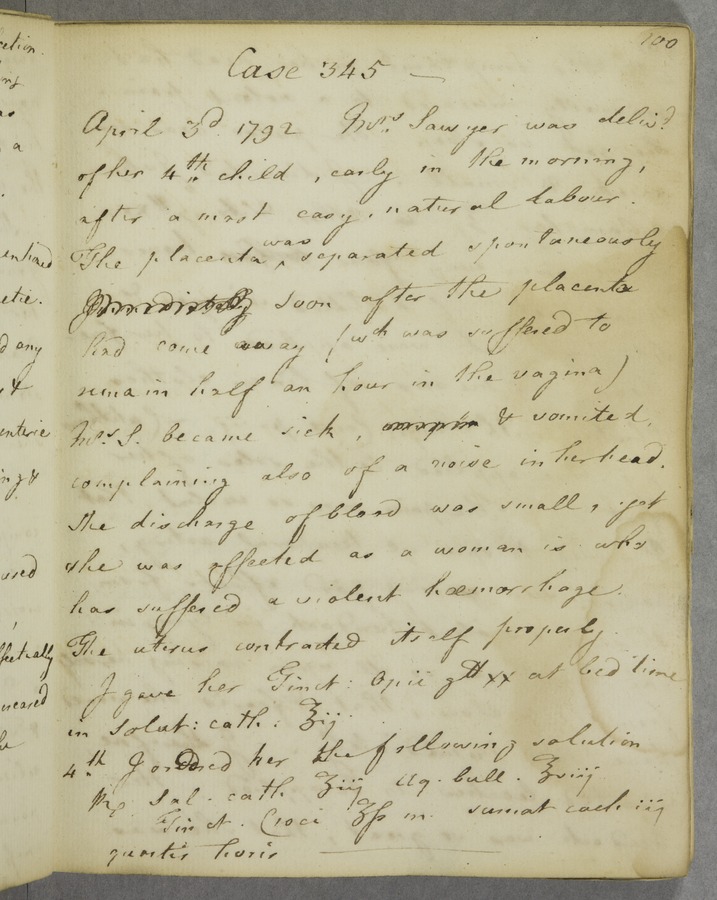 100
Case 345 —
April 3d. 1792 Mrs. Sawyer was deliv.d
of her 4th. child, early in the morning,
after a most easy, natural labour.
The placenta was separated spontaneously
Immediately soon after the placenta
had come away (wh was suffered to
remain half an hour in the vagina)
Mrs. S. became sick, & vomited,
complaining also of a noise in her head.
the discharge of blood was small, yet
she was affected as a woman is who
has suffered a violent hæmorrhage.
The uterus contracted itself properly.
I gave her Tinct: Opii gtt xx at bed time
in solut: cath: ʒij
4th. I ordered her the following solution
℞ Sal. cath ʒiij aq. bull. ʒviij
Tinct. Croci ʒß m. sumat coch iij
quartis horis